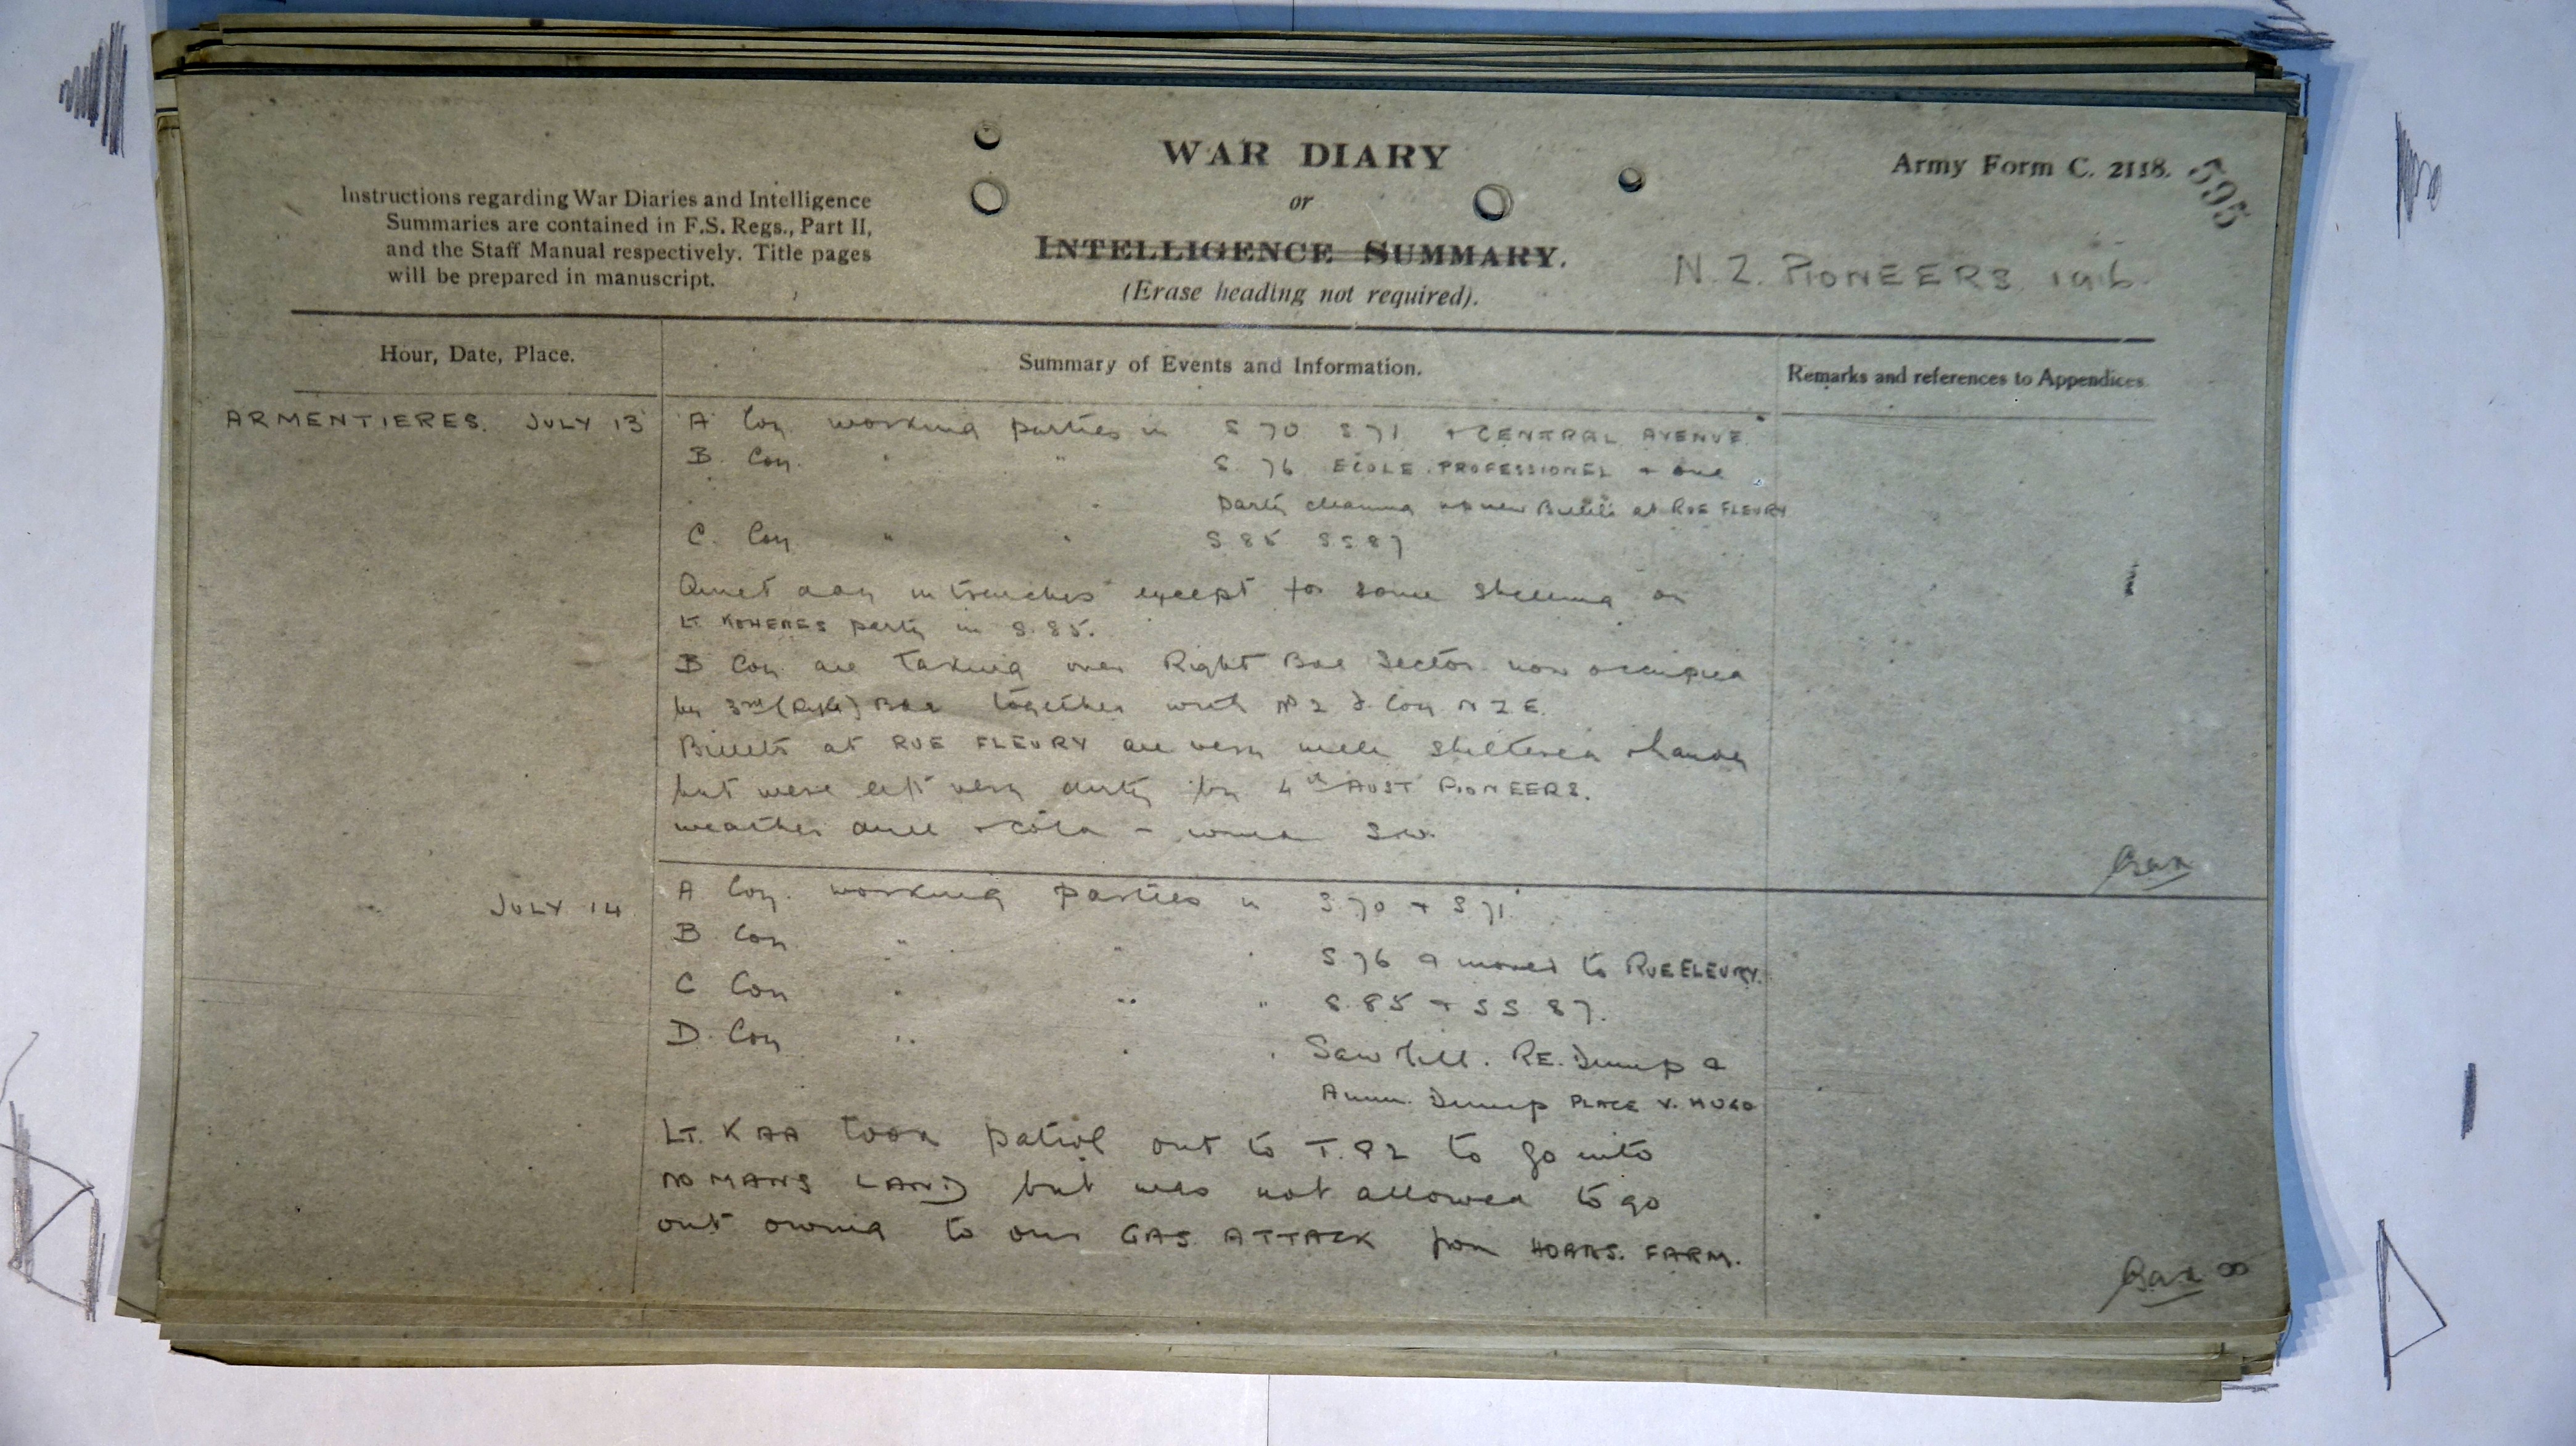 WAR DIARY
or
INTELLIGENCE SUMMARY.
(Erase heading not required).
Army Form C. 2118.
595
Instructions regarding War Diaries and Intelligence
Summaries are contained in F.S. Regs., Part II,
and the Staff Manual respectively. Title pages
will be prepared in manuscript.
N. Z. PIONEERS
Hour, Date, Place.
Summary of Events and Information.
Remarks and references to Appendices
ARMENTIERES. JULY 13
A Coy. working parties in S 70 S 71 + CENTRAL AVENUE
B. Coy. " " S. 76 ECOLE PROFESSIONEL + one
" party cleaning up new Billets at RUE FLEURY
C. Coy " " S 85 SS 87
Quiet day in trenches except for some shelling on
LT. KOHERES party in S. 85.
B Coy are taking over Right Bde Sector now occupied
by 3rd (Rifle) Bde together with No 2 F. Coy N Z E.
Billets at RUE FLEURY are very well sheltered + handy
but were left very dirty by 4th AUST PIONEERS.
weather dull + cold - wind SW.
" JULY 14
A Coy. working parties in S 70 + S 71
B Coy " " " S 76 & moved to RUE FLEURY.
C Coy " " " S. 85 + SS 87.
D. Coy " " " Saw Mill. RE. Dump &
Amm. Dump PLACE V. HUGO
LT. KAA took patrol out to T. 92 to go into
NO MANS LAND but was not allowed to go
out owing to our GAS ATTACK from HOBBS. FARM.